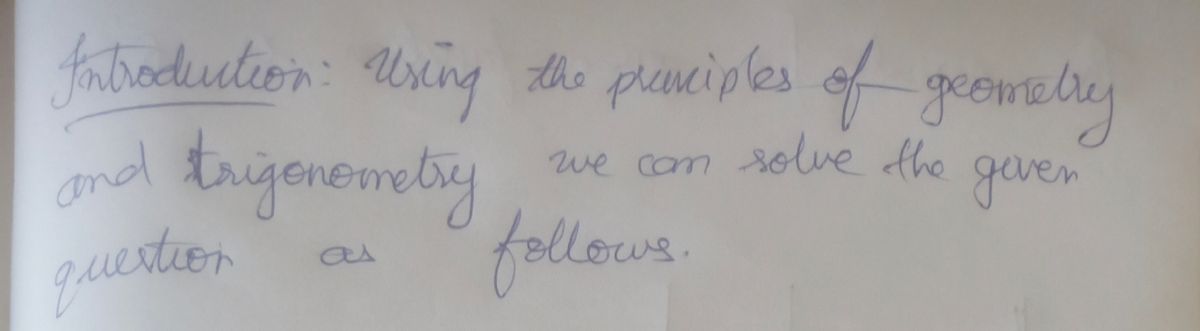 Introduction: Using the principles of geometry
and trigonometry we can solve the given
question as follows.